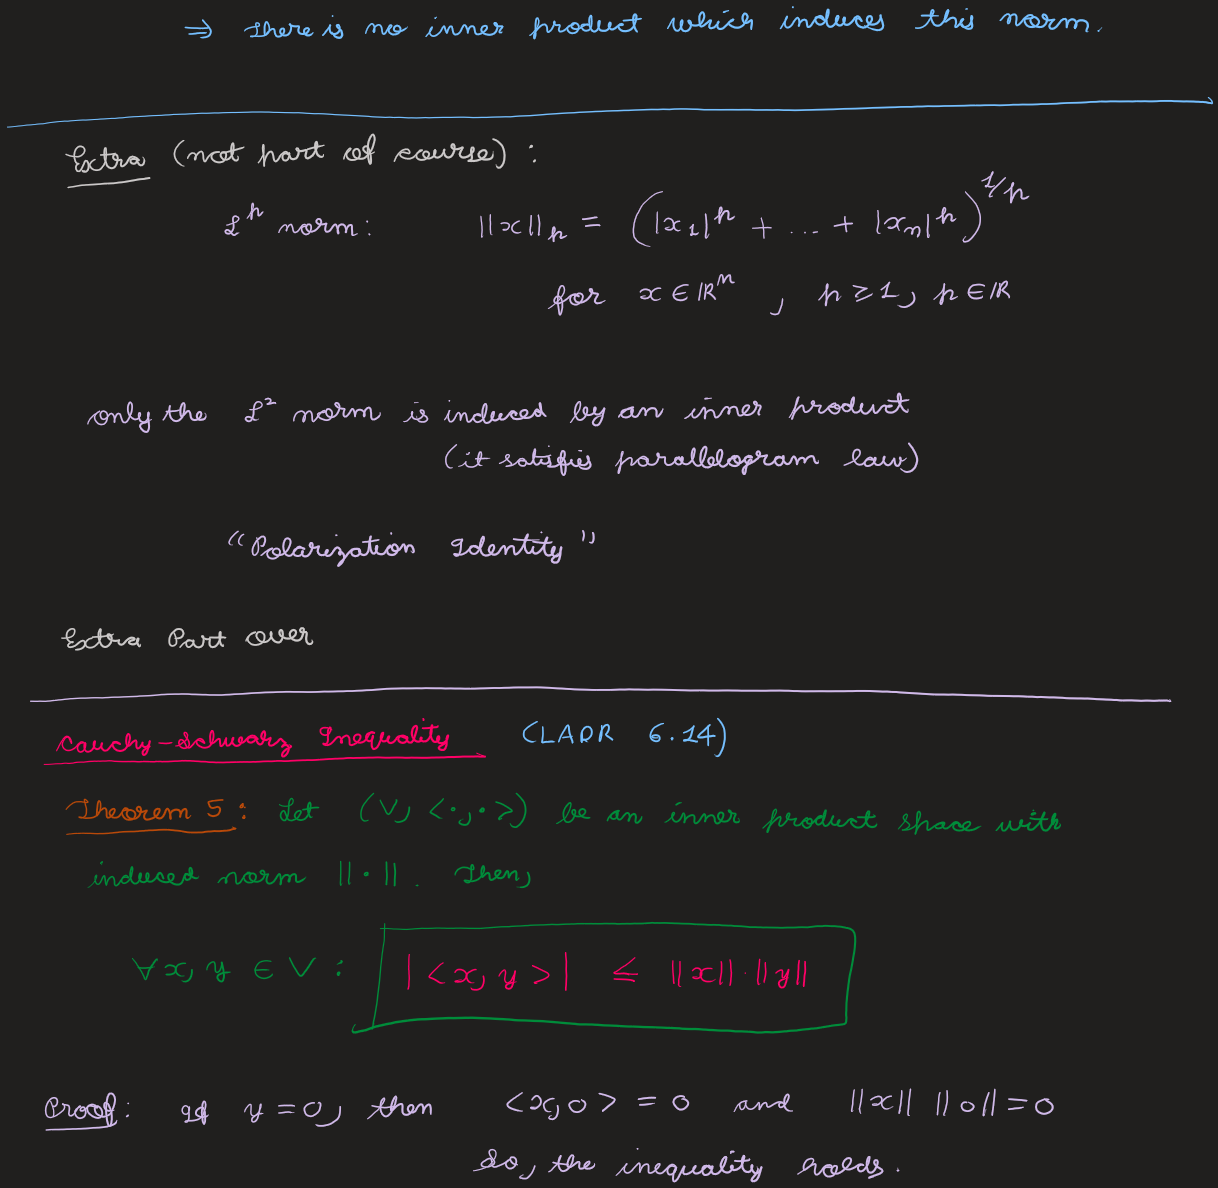 ⇒ There is no inner product which induces this norm.
Extra (not part of course) :
L^p norm: ||x||_p = (|x_1|^p + ... + |x_n|^p)^{1/p}
for x ∈ ℝ^n , p ≥ 1, p ∈ ℝ
only the L² norm is induced by an inner product
(it satisfies parallelogram law)
"Polarization Identity"
Extra Part over
Cauchy-Schwarz Inequality (LADR 6.14)
Theorem 5: Let (V, <·,·>) be an inner product space with
induced norm ||·||. Then,
∀x, y ∈ V : |<x, y>| ≤ ||x||·||y||
Proof: If y = 0, then <x, 0> = 0 and ||x|| ||0|| = 0
So, the inequality holds.